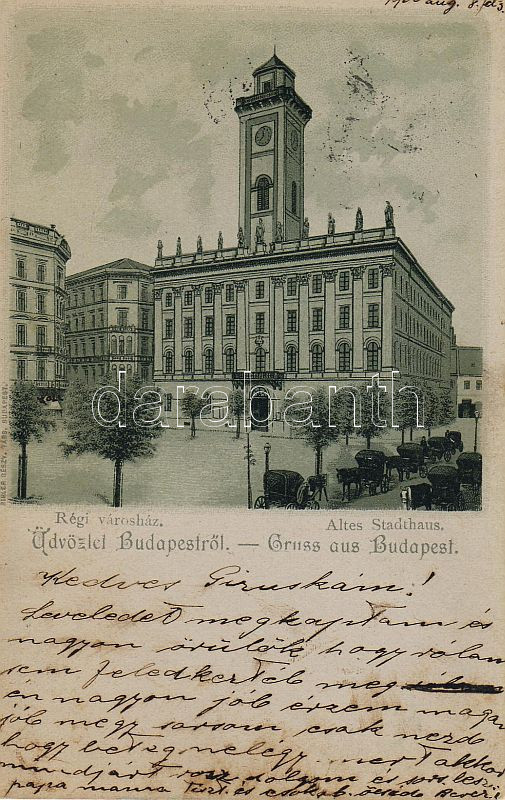 aug. 8.
darabanth
Régi városház.
Altes Stadthaus.
Üdvözlet Budapestről. — Gruss aus Budapest.
Kedves Giruskám!
Leveledet megkaptam és
nagyon örülök hogy rólam
sem feledketek meg
én nagyon jób érzem magam
jób megy sorsom csak nezd
hogy beteg nelegy mert akkor
mindjárt rosz dolgom és lesz
papa mama